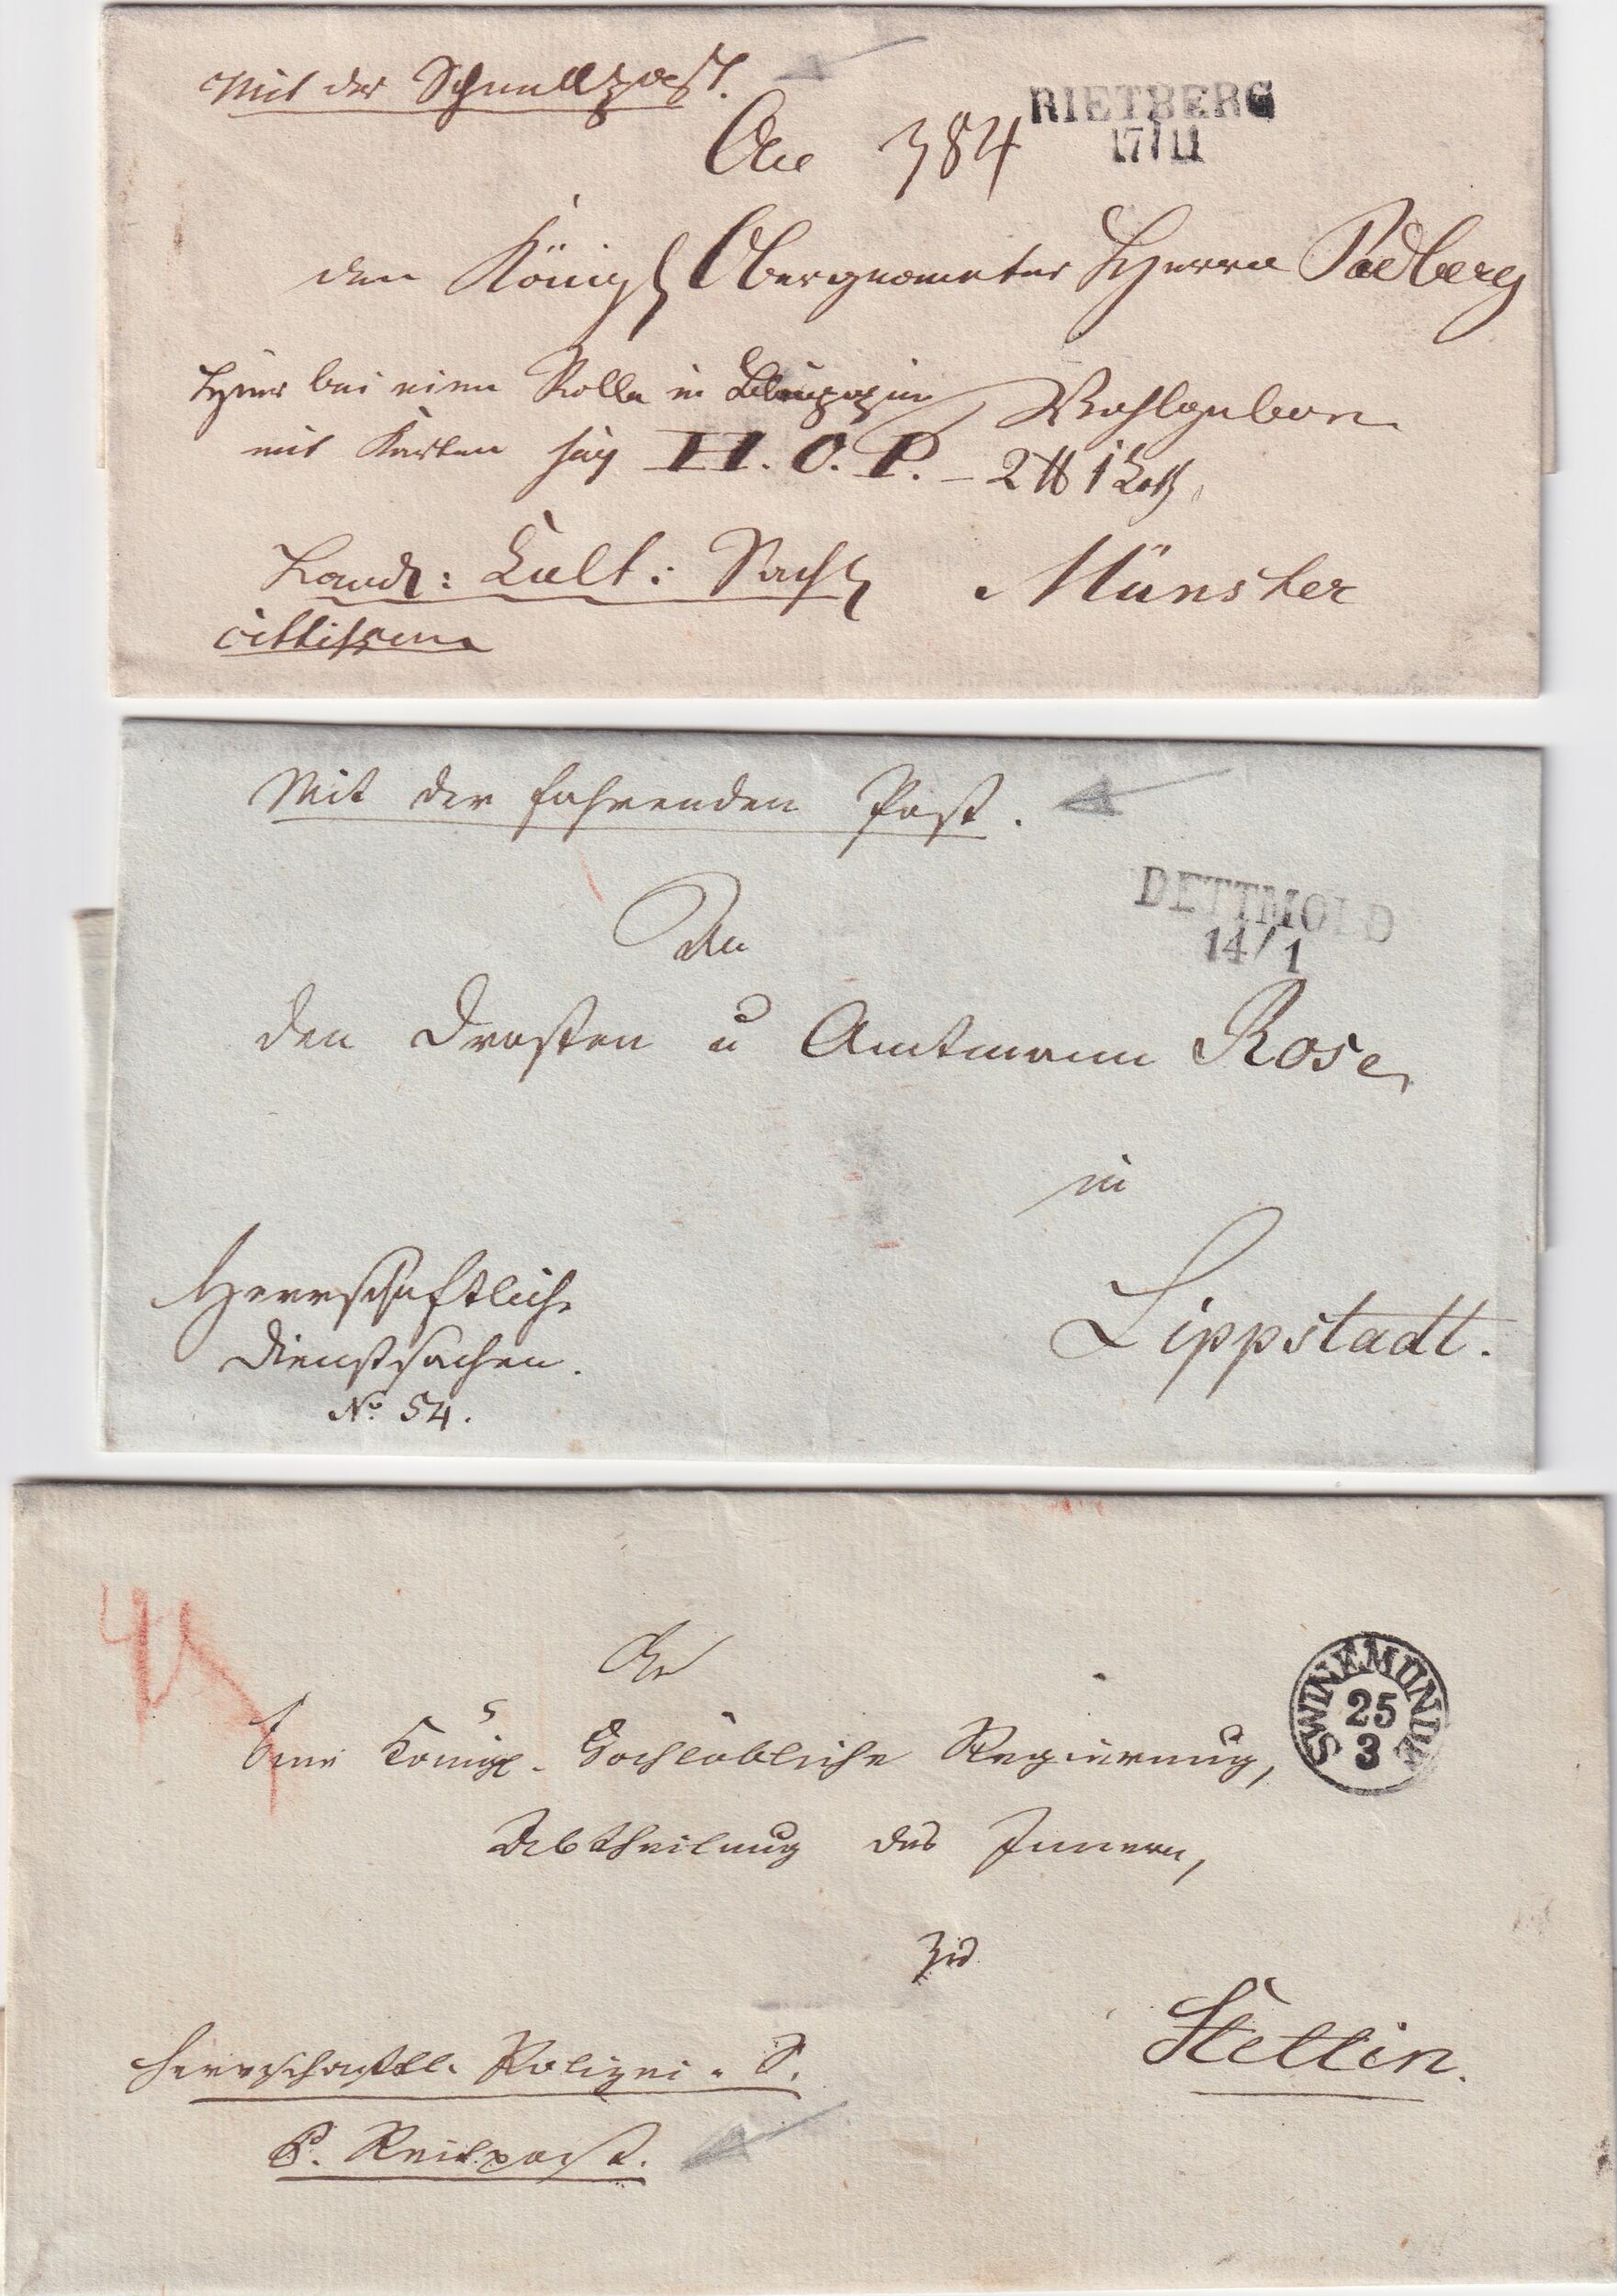 Mit der Schnellpost.
RIETBERG
17/11
An 384
den Königl Obergeometer Herrn Padberg
Hier bei eine Rolle in
Wohlgeboren
mit Karten sig H. O. P. – 2 ℔ 1 Loth
Land: Cult: Sach
Münster
cittissime
Mit der fahrenden Post.
DETTMOLD
14/1
An
den Drosten u Amtmann Rose
in
Herrschaftliche
Lippstadt.
Dienstsachen.
No. 54.
An
SWINEMÜNDE
25
3
Eine Königl. Hochlöbliche Regierung,
Abtheilung des Innern,
zu
Stettin.
Herrschaftl. Polizei-S.
P. Reitpost.